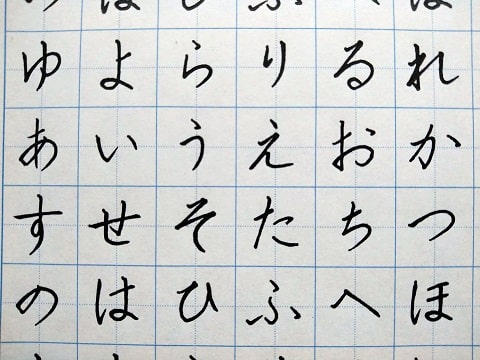 ゆよらりるれ
あいうえおか
すせそたちつ
のはひふへほ